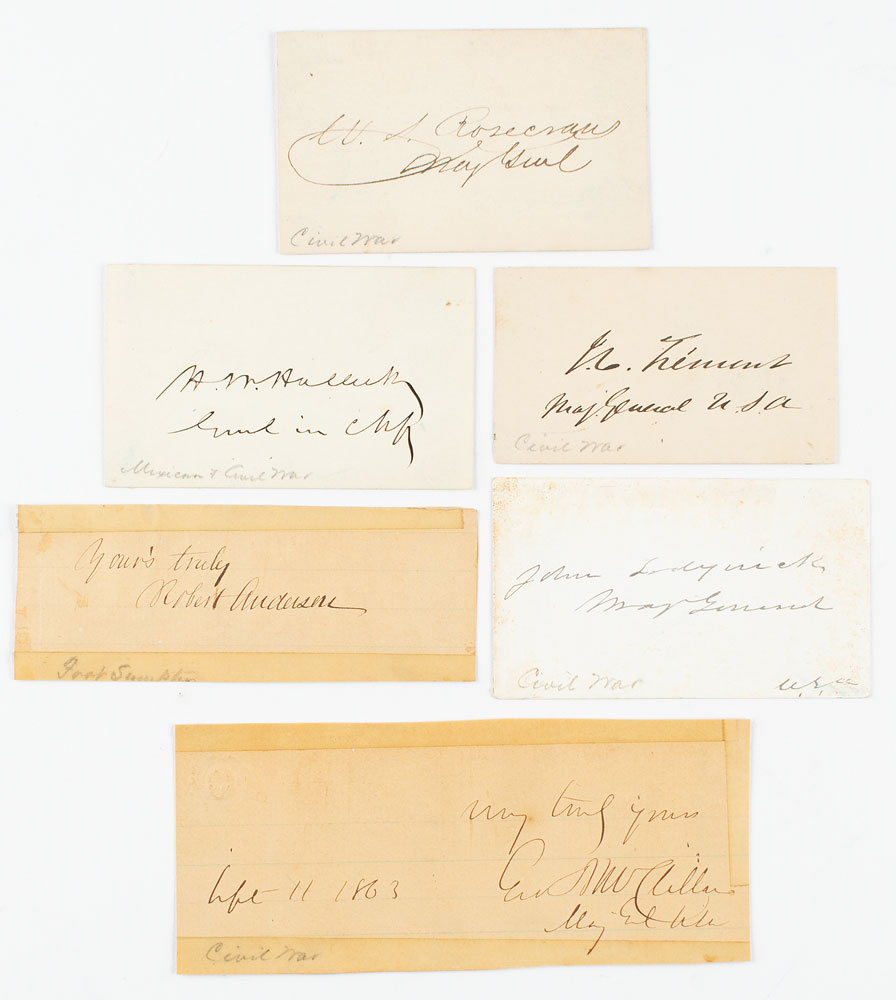 W. S. Rosecrans
Maj Genl
Civil War
H. W. Halleck
Genl in Chf
Mexican & Civil War
J. C. Frémont
Maj. General U. S. A
Civil War
Your's truly
Robert Anderson
Fort Sumpter
John Sedgwick
Maj General
Civil War
U.S.A
Very truly yours
Sept 11 1863
Geo B McClellan
Maj Genl USA
Civil War